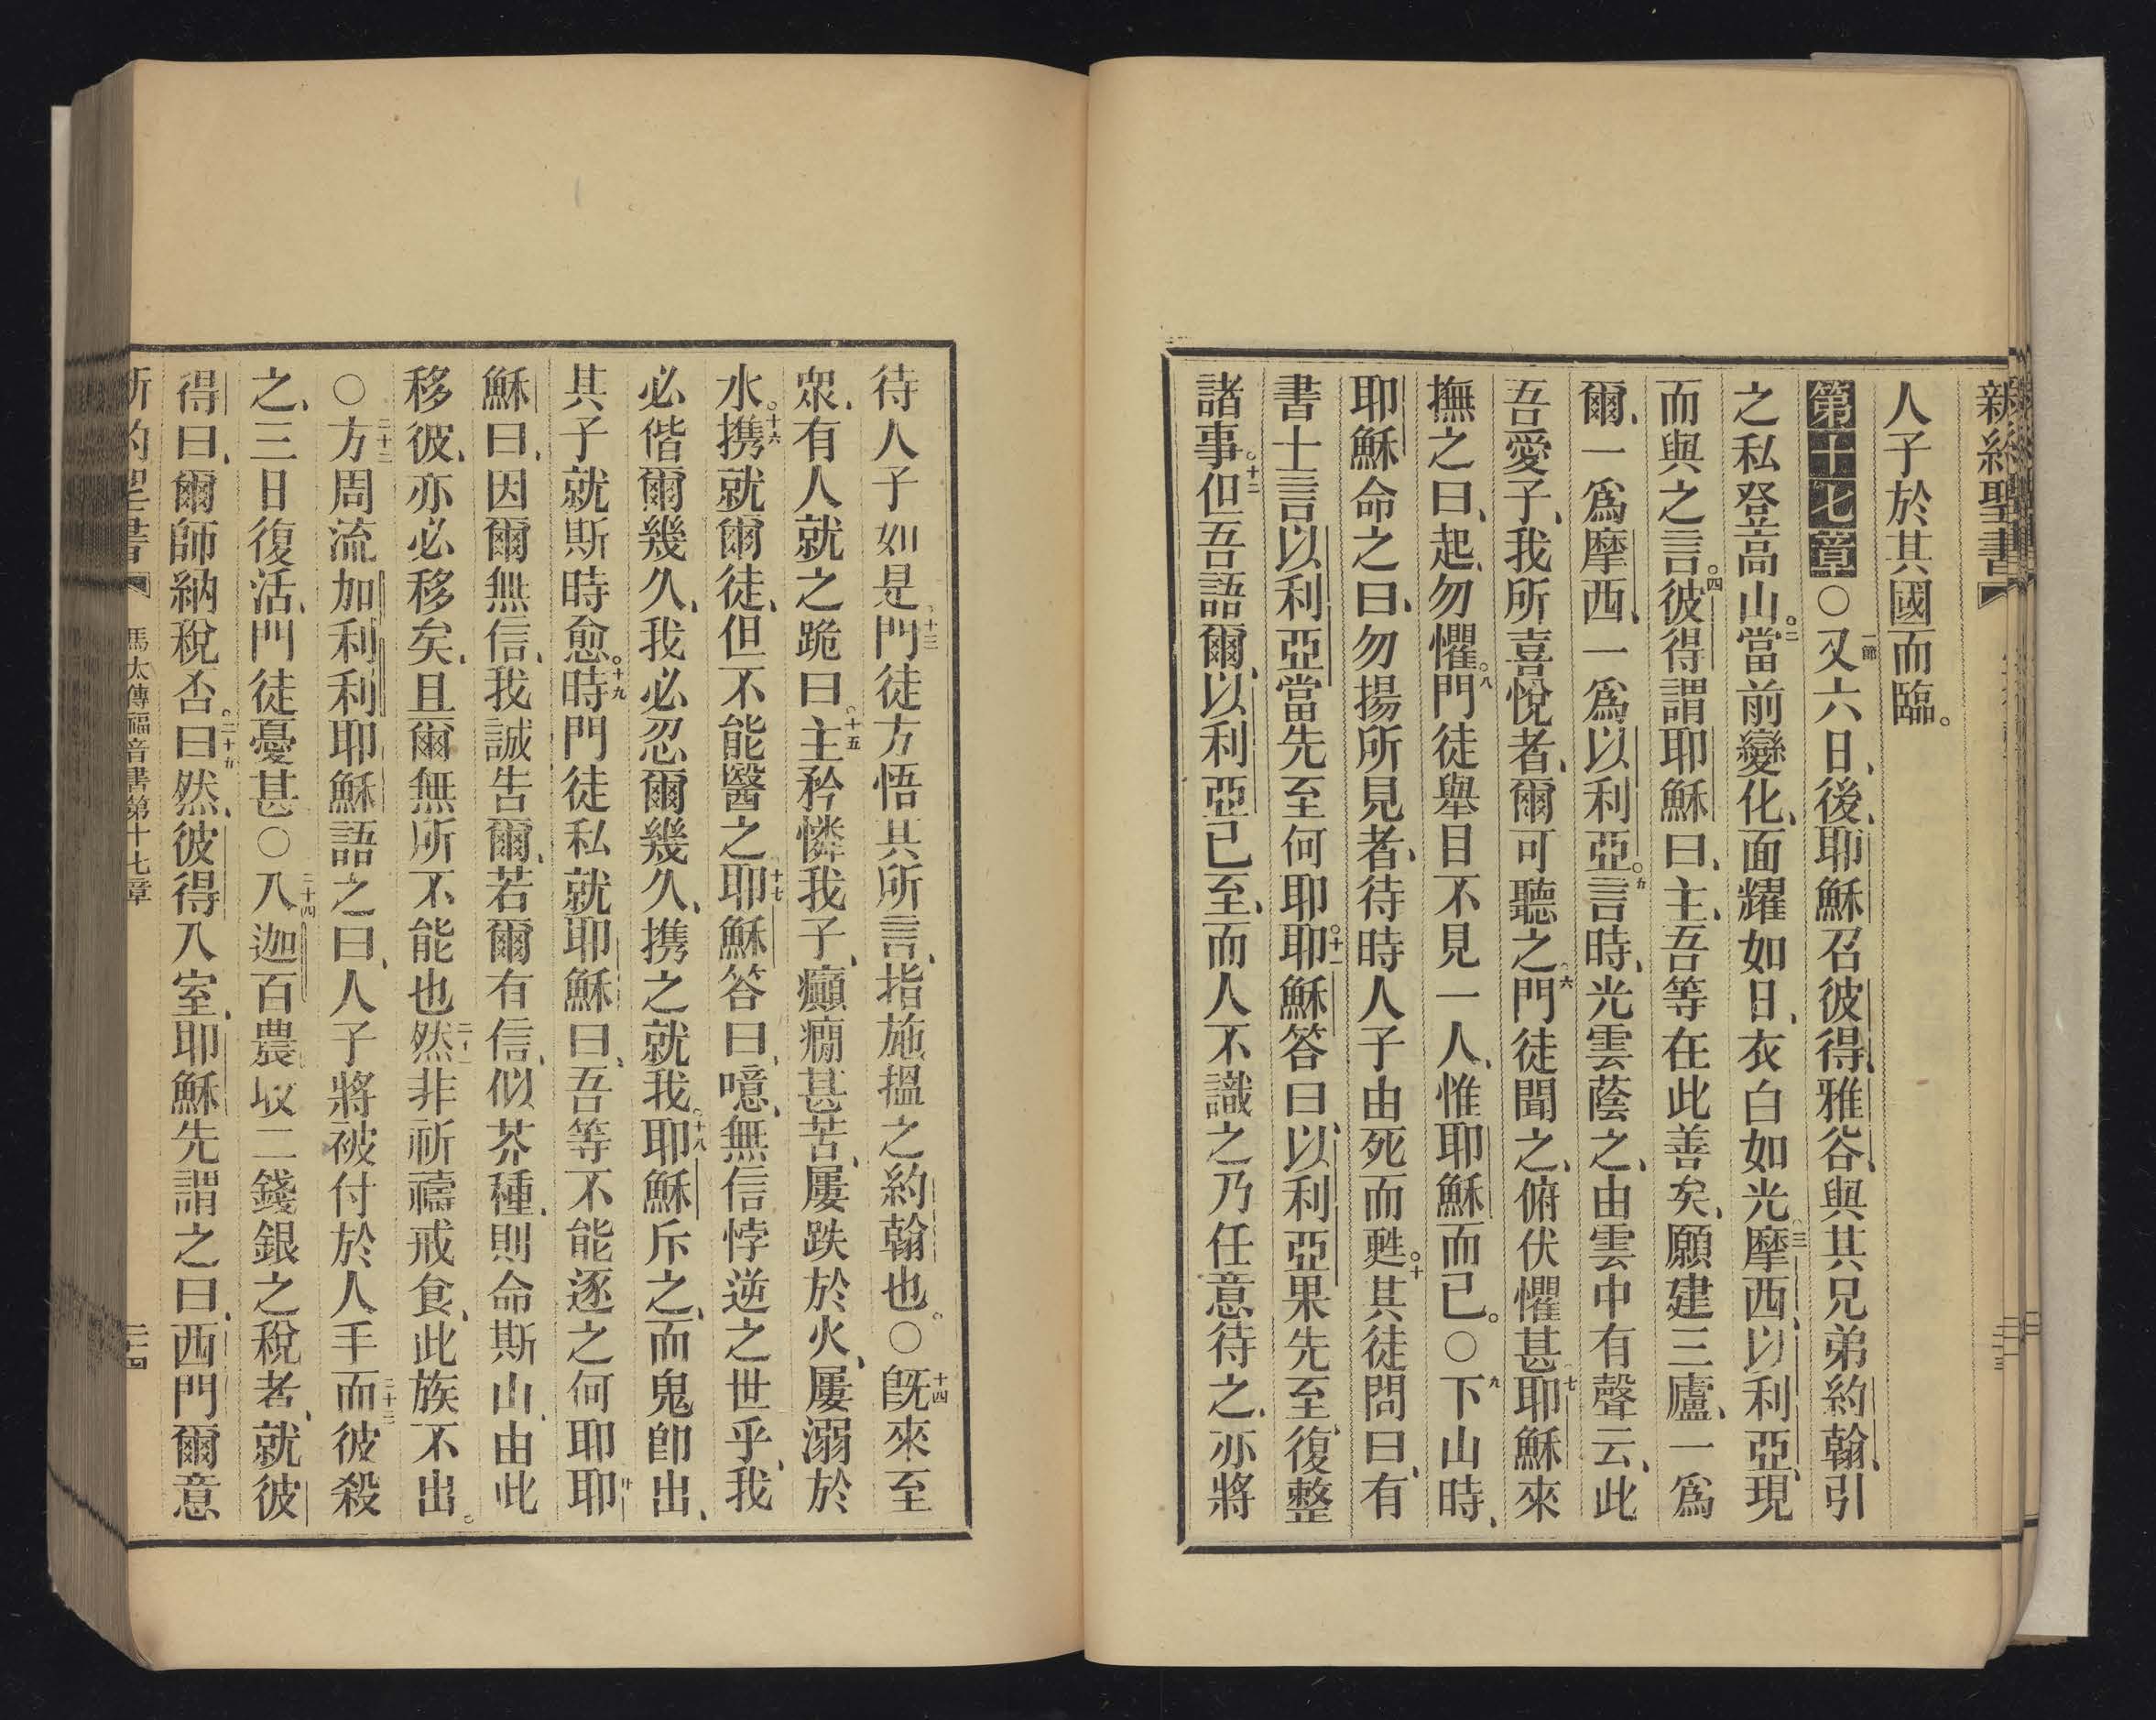 新約聖書
人子於其國而臨。
第十七章○一節又六日、後、耶穌召彼得、雅谷、與其兄弟約翰、引
之私登高山。二當前變化、面耀如日、衣白如光。三摩西、以利亞、現
而與之言。四彼得謂耶穌曰、主、吾等在此善矣、願建三廬、一爲
爾、一爲摩西、一爲以利亞。五言時、光雲蔭之、由雲中有聲云、此
吾愛子、我所喜悅者、爾可聽之。六門徒聞之、俯伏懼甚。七耶穌來
撫之曰、起、勿懼。八門徒舉目不見一人、惟耶穌而已。○九下山時、
耶穌命之曰、勿揚所見者、待時人子由死而甦。十其徒問曰、有
書士言以利亞當先至何耶。十一耶穌答曰、以利亞果先至、復整
諸事。十二但吾語爾、以利亞已至、而人不識之乃任意待之、亦將
待人子如是。十三門徒方悟其所言、指施搵之約翰也。○十四旣來至
衆、有人就之跪曰。十五主矜憐我子、癲癇甚苦、屢跌於火、屢溺於
水。十六携就爾徒、但不能醫之。十七耶穌答曰、噫、無信悖逆之世乎、我
必偕爾幾久、我必忍爾幾久、携之就我。十八耶穌斥之、而鬼卽出、
其子就斯時愈。十九時門徒私就耶穌曰、吾等不能逐之何耶。廿耶
穌曰、因爾無信、我誠告爾、若爾有信、似芥種、則命斯山、由此
移彼、亦必移矣、且爾無所不能也。二十一然非祈禱戒食、此族不出。
○二十二方周流加利利耶穌語之曰、人子將被付於人手。二十三而彼殺
之、三日復活、門徒憂甚○二十四入迦百農、收二錢銀之稅者、就彼
得曰、爾師納稅否。二十五曰、然、彼得入室、耶穌先謂之曰、西門爾意
馬太傳福音書第十七章
二十四